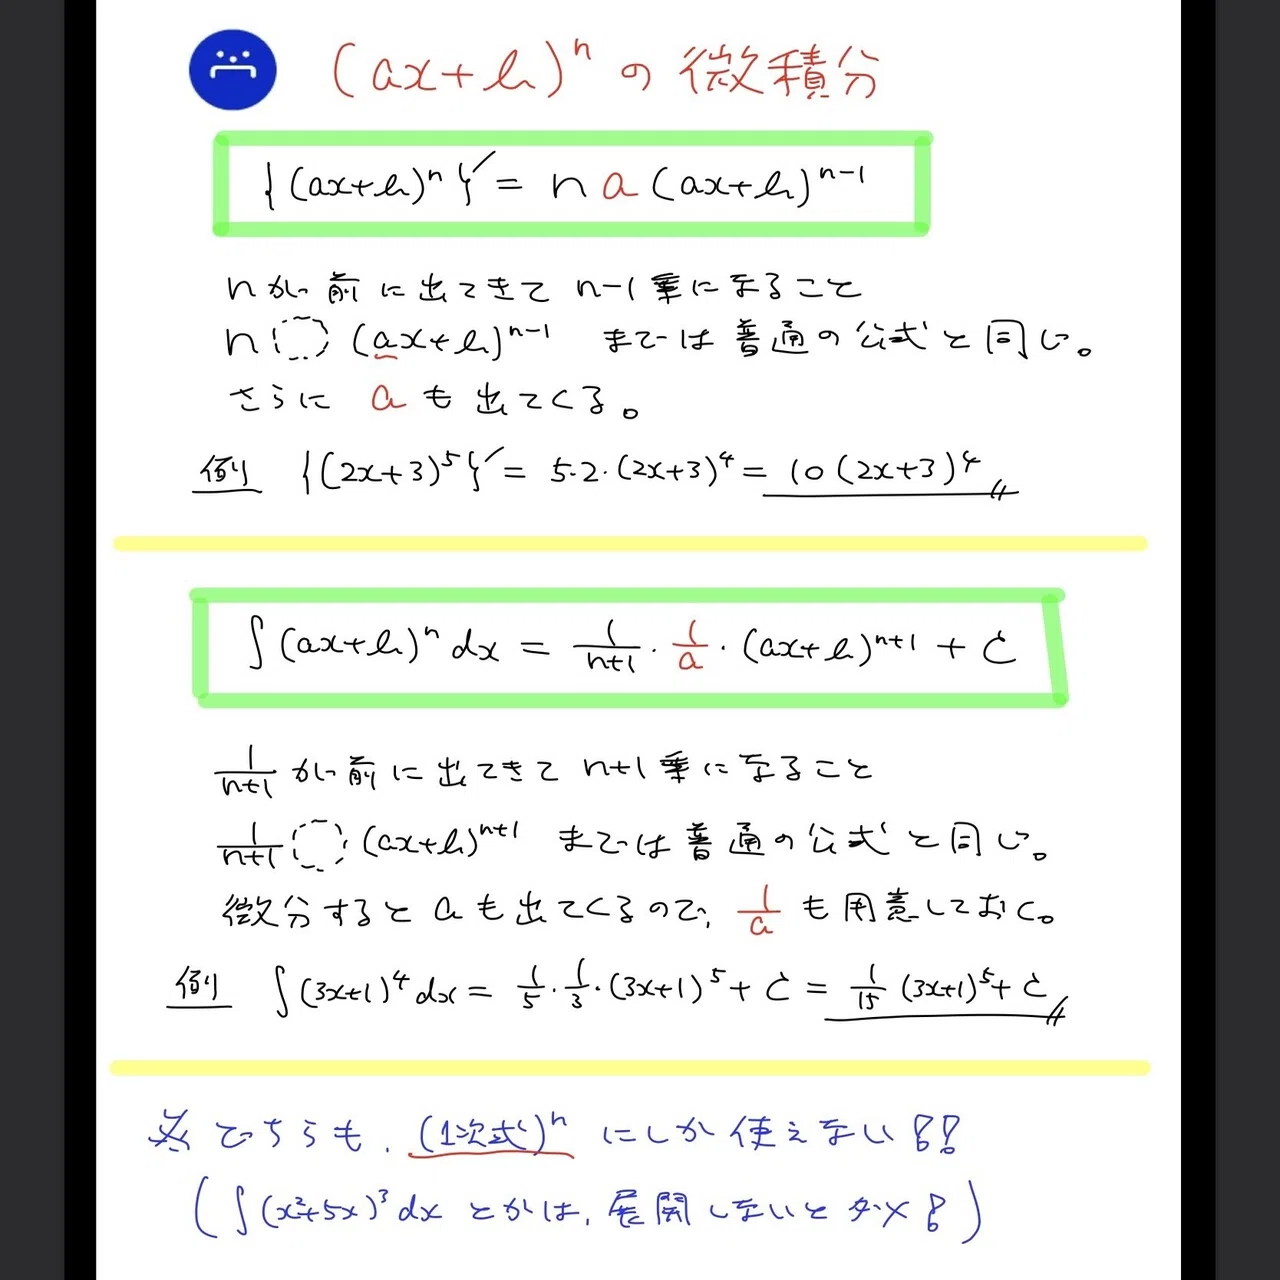 (ax+b)^n の 微積分
{(ax+b)^n}′ = n a (ax+b)^{n-1}
nが 前に出てきて n-1乗になること
n (ax+b)^{n-1} までは普通の公式と同じ。
さらに a も出てくる。
例 {(2x+3)^5}′ = 5·2·(2x+3)^4 = 10(2x+3)^4
∫(ax+b)^n dx = 1/(n+1) · 1/a · (ax+b)^{n+1} + C
1/(n+1) が前に出てきて n+1乗になること
1/(n+1) (ax+b)^{n+1} までは普通の公式と同じ。
微分すると aも出てくるので, 1/a も用意しておく。
例 ∫(3x+1)^4 dx = 1/5 · 1/3 · (3x+1)^5 + C = 1/15 (3x+1)^5 + C
※ どちらも, (1次式)^n にしか使えない!!
(∫(x²+5x)³dx とかは, 展開しないとダメ!)